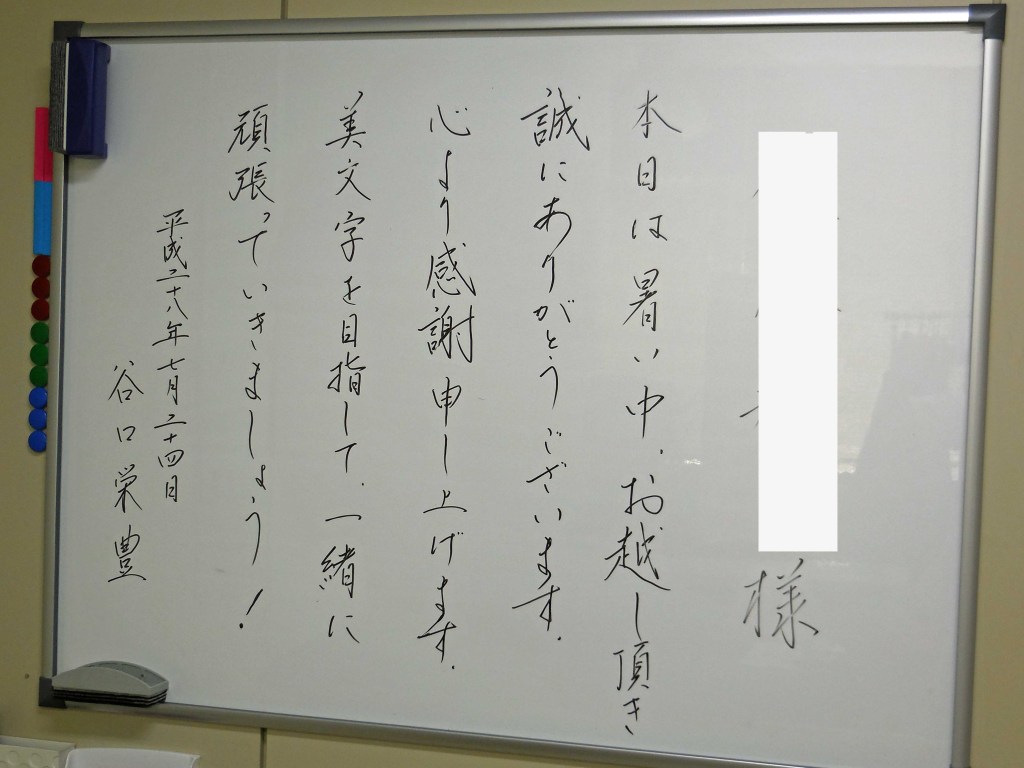 様
本日は暑い中、お越し頂き
誠にありがとうございます。
心より感謝申し上げます。
美文字を目指して、一緒に
頑張っていきましょう！
平成二十八年七月二十四日
谷口栄豊